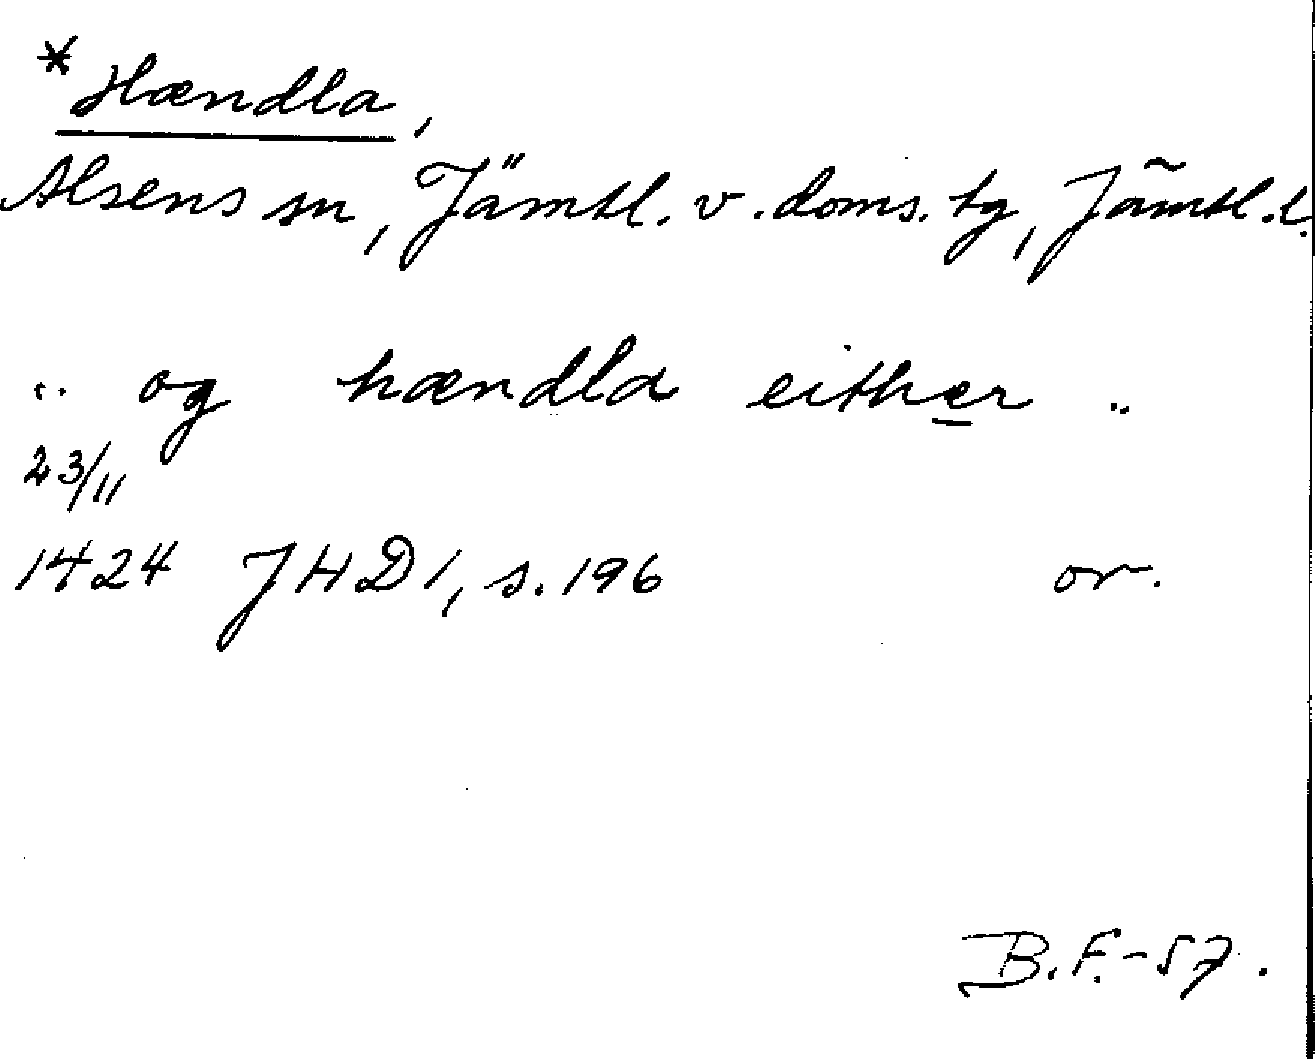 *Hændla,
Alsens sn, Jämtl. v. doms. tg, Jämtl. l.
.. og hændla either ..
23/11
1424 JHD 1, s. 196 or.
B.F.-57.